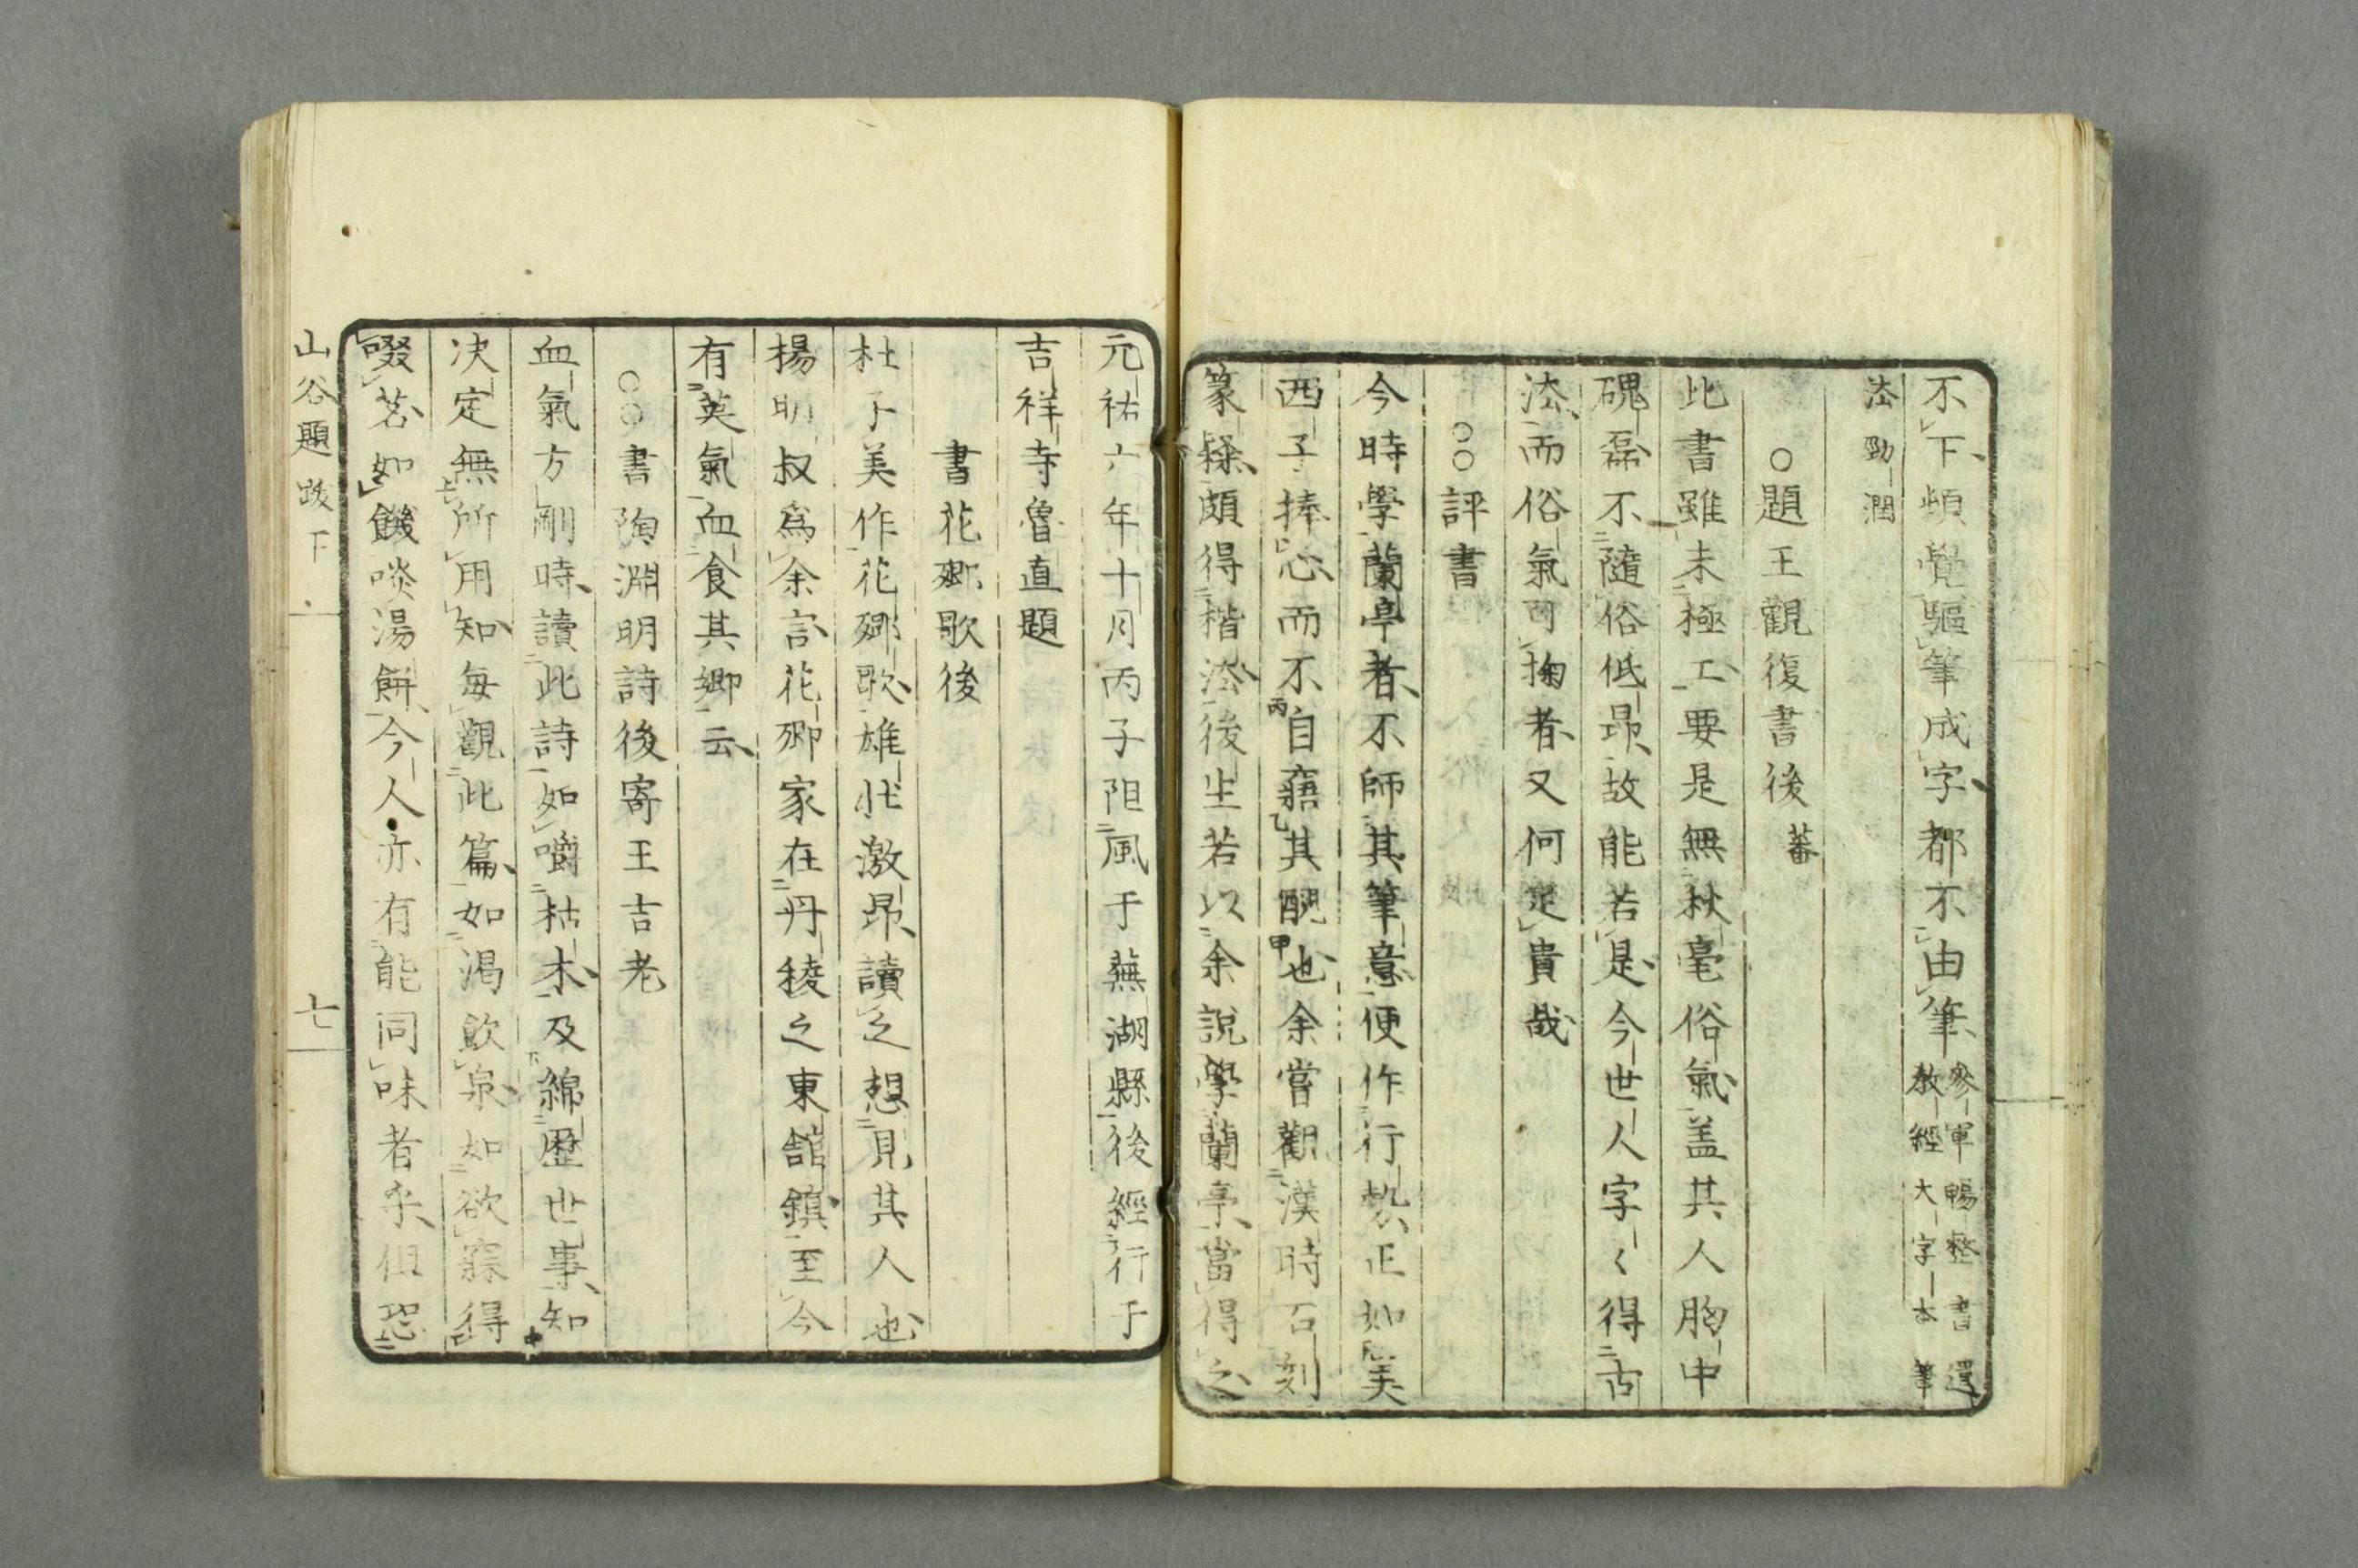 不下頻覺驅筆成字都不由筆
參軍暢整書遺
教經大字本筆
法勁潤
〇題王觀復書後 蕃
此書雖未極工要是無秋毫俗氣盖其人胸中
磈磊不隨俗低昂故能若是今世人字〱得古
法而俗氣可掬者又何足貴哉
〇〇評書
今時學蘭亭者不師其筆意便作行勢正如美
西子捧心而不自寤其醜也余嘗觀漢時石刻
篆隸頗得楷法後生若以余說學蘭亭當得之
元祐六年十月丙子阻風于蕪湖縣後經行于
吉祥寺魯直題
書花卿歌後
杜子美作花卿歌雄壯激昂讀之想見其人也
楊明叔爲余言花卿家在丹稜之東館鎮至今
有英氣血食其鄉云
〇〇書陶淵明詩後寄王吉老
血氣方剛時讀此詩如嚼枯木及綿歷世事知
决定無所用知每觀此篇如渴飲泉如欲寐得
啜茗如饑啖湯餅今人亦有能同味者乎但恐
山谷題跋下
七